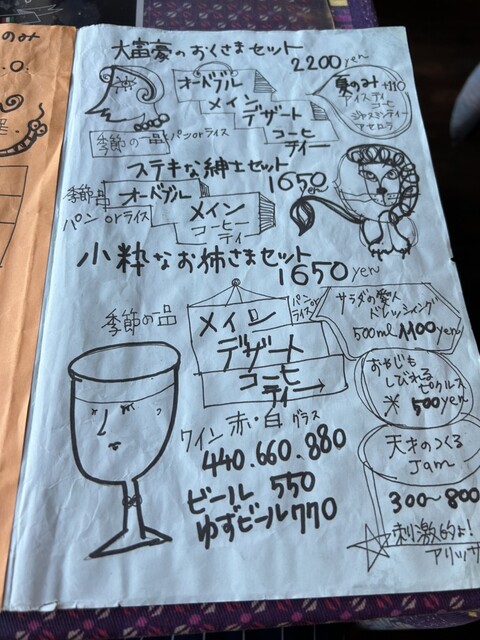 のみ
大富豪のおくさまセット
2200yen
オードブル
メイン
デザート
コーヒ
ティー
季節の一品 パンorライス
夏のみ+110
アイスティ
コーヒ
ジャスミンティー
アセロラ
ステキな紳士セット
1650
季節品
パン orライス
オードブル
メイン
コーヒ
ティー
小粋なお姉さまセット
1650yen
季節の一品
メイン
デザート
コーヒ
ティー
パンor
ライス
サラダの愛人
ドレッシング
500ml 1100yen
おやじも
しびれる
ピクルス
※ 500yen
天才のつくる
Jam
300〜800
刺激的よ!
アリッサ
ワイン 赤・白 グラス
440.660.880
ビール 550
ゆずビール770